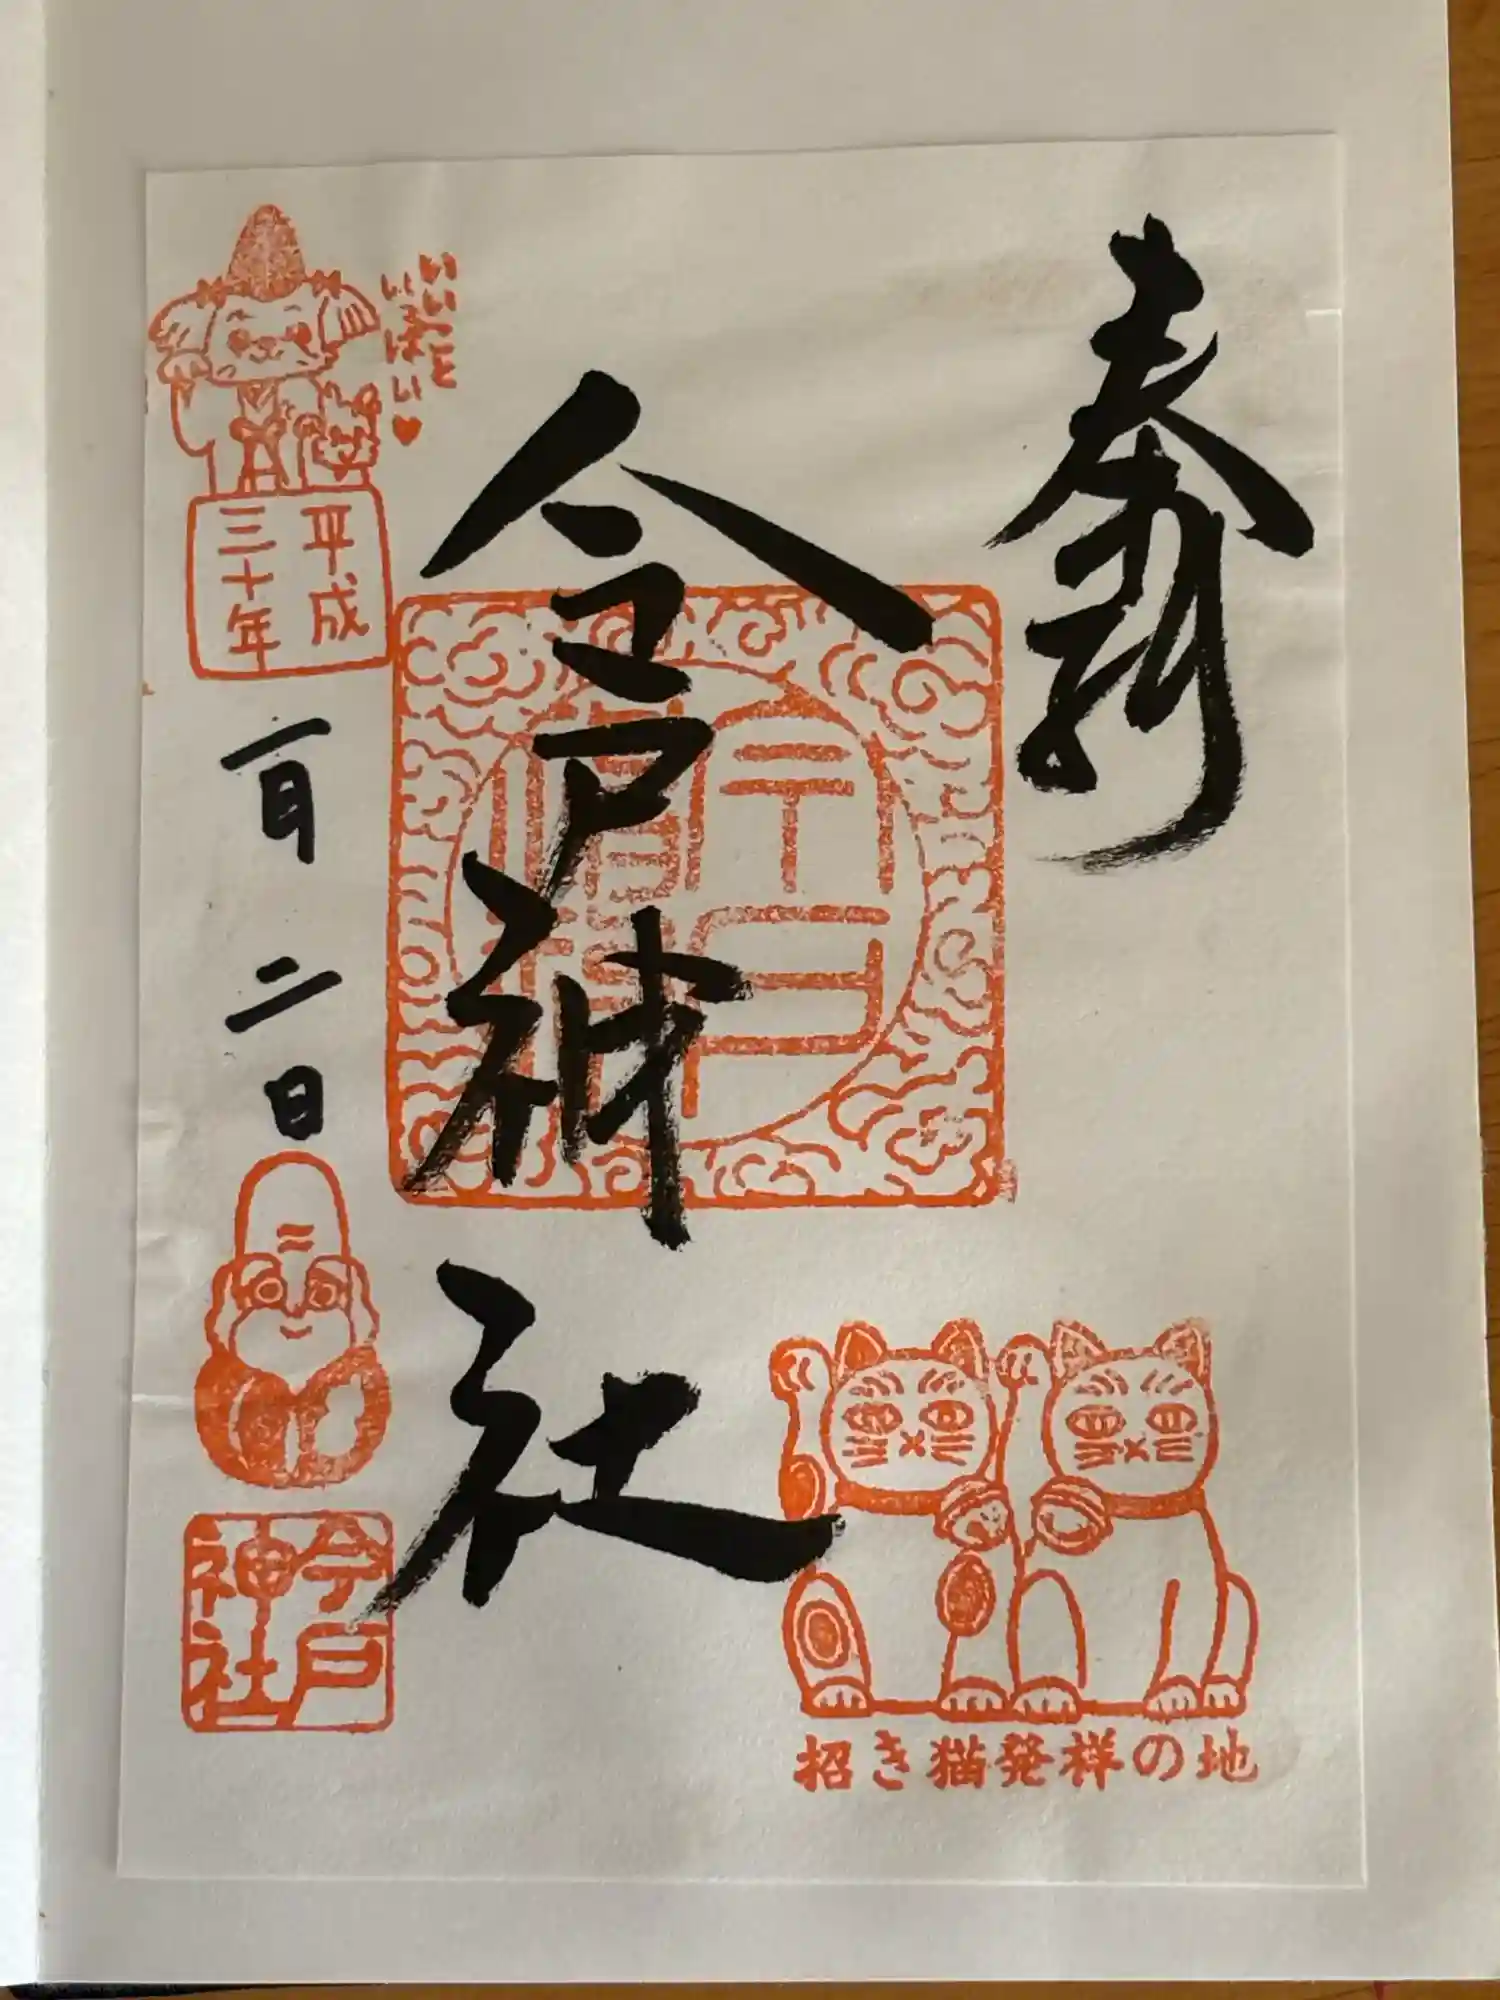 奉拝
今戸神社
いいこと
いっぱい♥
平成
三十年
一月二日
今戸
神社
招き猫発祥の地